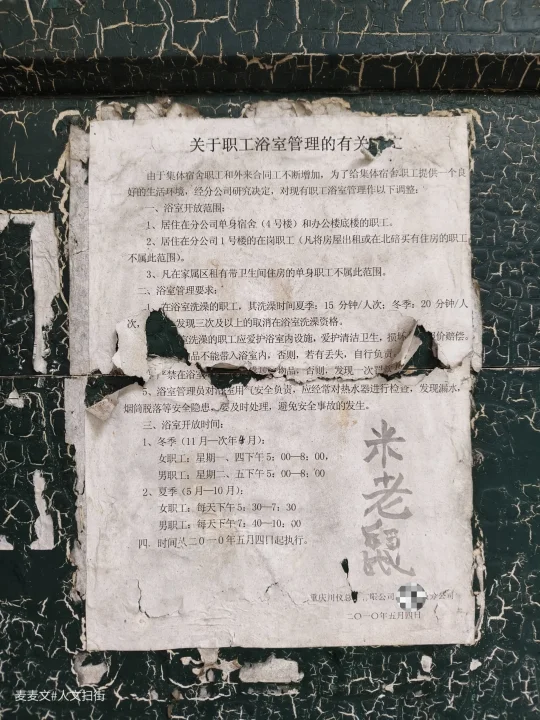 关于职工浴室管理的有关
由于集体宿舍职工和外来合同工不断增加，为了给集体宿舍职工提供一个良
好的生活环境，经分公司研究决定，对现有职工浴室管理作以下调整：
一、浴室开放范围：
1、居住在分公司单身宿舍（4号楼）和办公楼底楼的职工。
2、居住在分公司1号楼的在岗职工（凡将房屋出租或在北碚买有住房的职工
不属此范围）。
3、凡在家属区租有带卫生间住房的单身职工不属此范围。
二、浴室管理要求：
1、在浴室洗澡的职工，其洗澡时间夏季：15 分钟/人次；冬季：20 分钟/人
次，发现三次及以上的取消在浴室洗澡资格。
洗澡的职工应爱护浴室内设施，爱护清洁卫生，损 价赔偿。
物品不能带入浴室内，否则，若有丢失，自行负责
禁在浴 物品，否则，发现一次
5、浴室管理员对浴室用气安全负责，应经常对热水器进行检查，发现漏水，
烟筒脱落等安全隐患，要及时处理，避免安全事故的发生。
三、浴室开放时间：
1、冬季（11月—次年4月）：
女职工：星期一、四下午5：00—8：00，
男职工：星期二、五下午5：00—8：00
2、夏季（5月—10月）：
女职工：每天下午5：30—7：30
男职工：每天下午7：40—10：00
四、时间从二0一0年五月四日起执行。
米老鼠
重庆川仪总 限公司 分公司
二0一0年五月四日
麦麦文#人文扫街